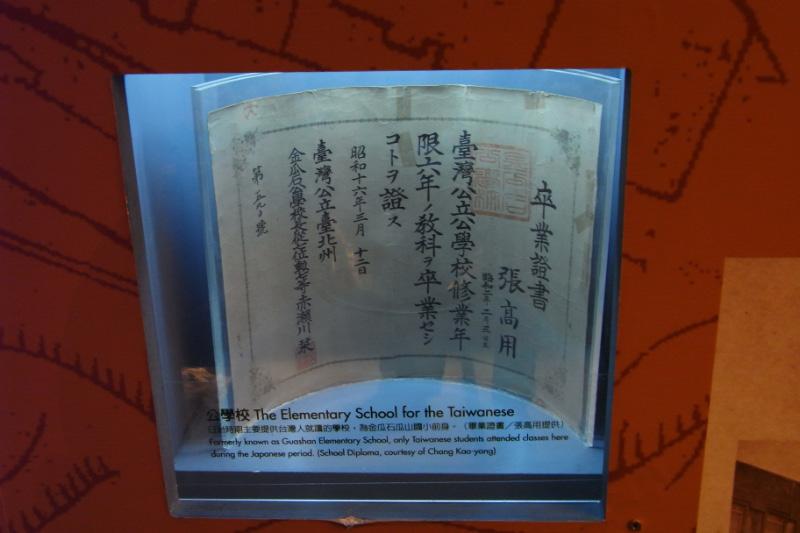 卒業證書
張高用
臺灣公立公學校修業年
限六年ノ教科ヲ卒業セシ
コトヲ證ス
昭和十六年三月 十二日
臺灣公立臺北州
金瓜石公學校長從七位勳七等赤瀨川 栞
公學校 The Elementary School for the Taiwanese
日治時期主要提供台灣人就讀的學校,為金瓜石瓜山國小前身。(畢業證書/張高用提供)
Formerly known as Guashan Elementary School, only Taiwanese students attended classes here
during the Japanese period. (School Diploma, courtesy of Chang Kao-yong)